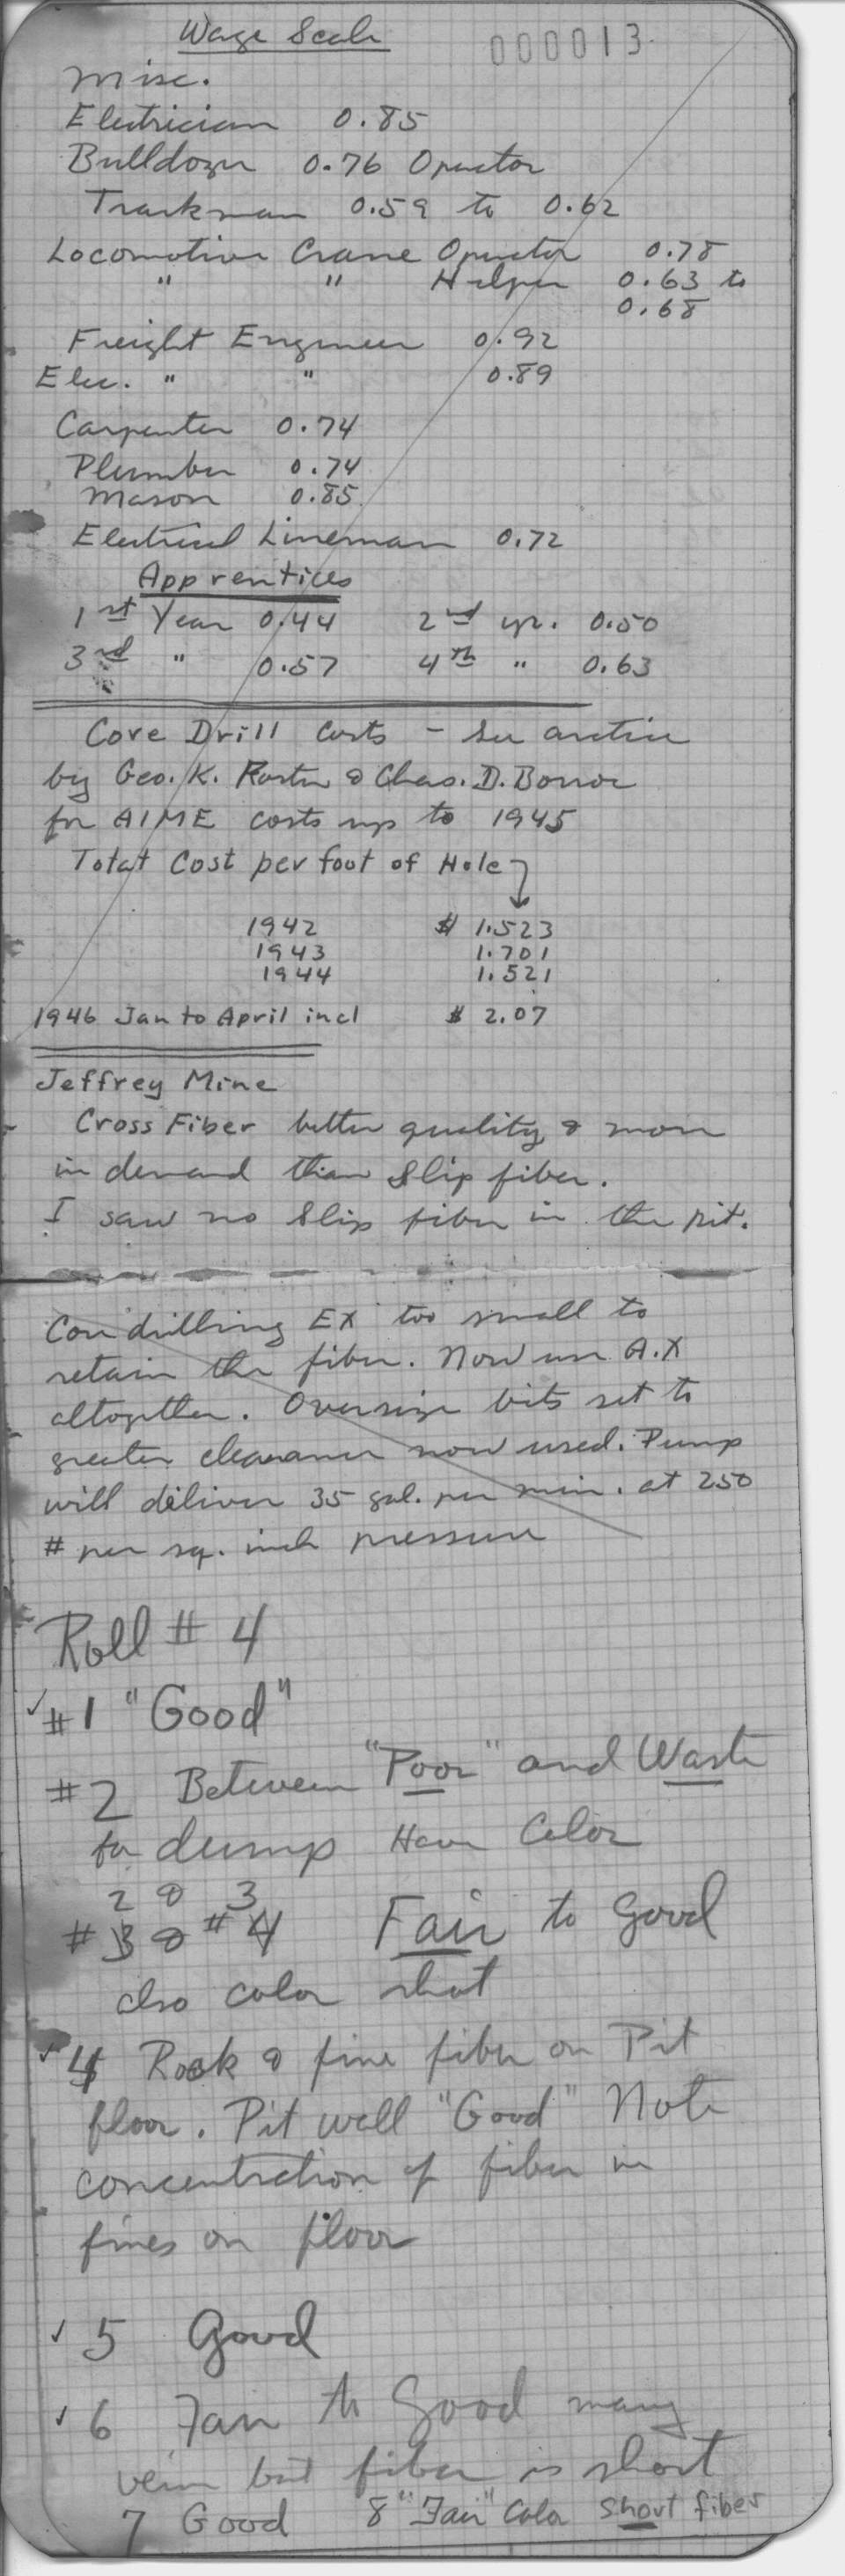 Wage Scale
000013
Misc.
Electrician 0.85
Bulldozer 0.76 Operator
Trackman 0.59 to 0.62
Locomotive Crane Operator 0.78
" " Helper 0.63 to
0.68
Freight Engineer 0.92
Elec. " " 0.89
Carpenter 0.74
Plumber 0.74
Mason 0.85
Electrical Lineman 0.72
Apprentices
1st Year 0.44 2nd yr. 0.50
3rd " 0.57 4th " 0.63
Core Drill Costs - See article
by Geo. K. & Chas. D.
for AIME costs up to 1945
Total Cost per foot of Hole
1942 $ 1.523
1943 1.701
1944 1.521
1946 Jan to April incl $ 2.07
Jeffrey Mine
Cross Fiber better quality & more
in demand than Slip fiber.
I saw no Slip fiber in the pit.
Core drilling EX too small to
retain the fiber. Now use A.X
altogether. Oversize bits set to
greater clearance now used. Pump
will deliver 35 gal. per min. at 250
# per sq. inch pressure
Roll # 4
#1 "Good"
#2 Between "Poor" and Waste
for dump Have Color
2 & 3
#3 & #4 Fair to Good
also color shot
4 Rock & fine fiber on Pit
floor. Pit wall "Good" Note
concentration of fiber in
fines on floor
5 Good
6 Fair to Good many
vein but fiber is short
7 Good 8 "Fair" Color Short fiber